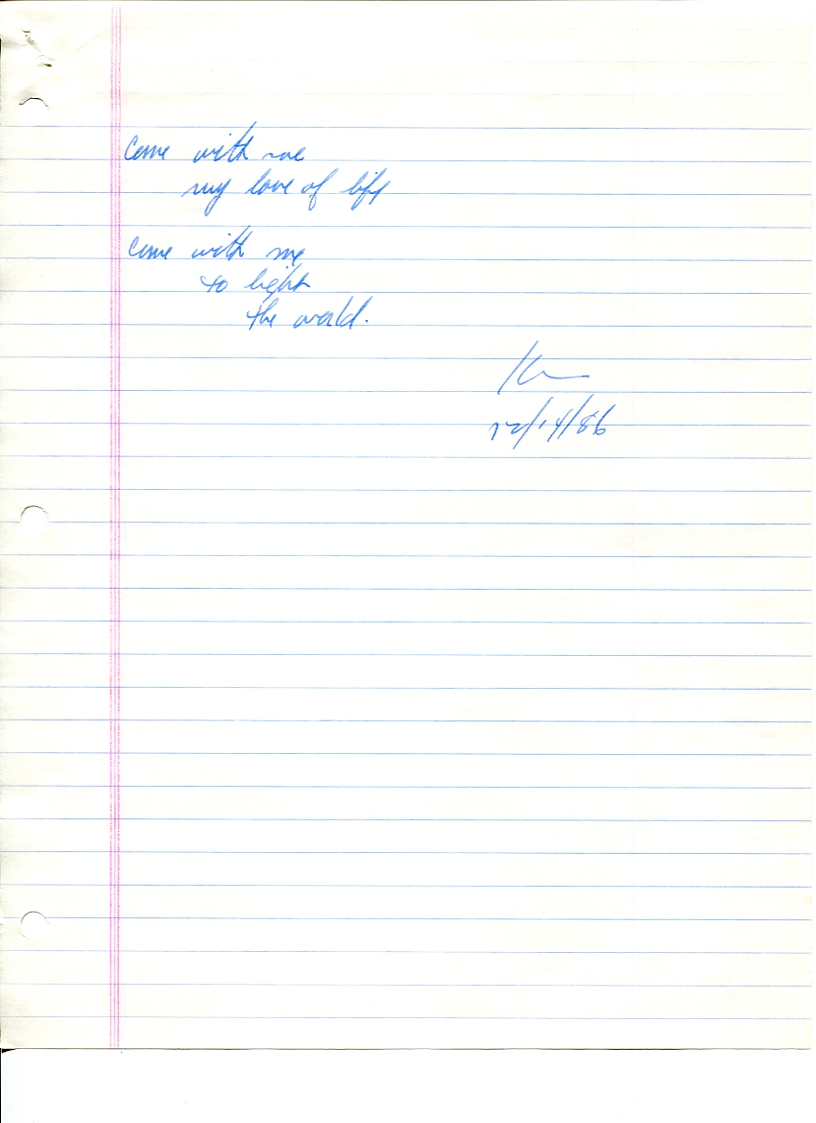 Come with me
my love of life
come with me
to light
the world.
12/14/86